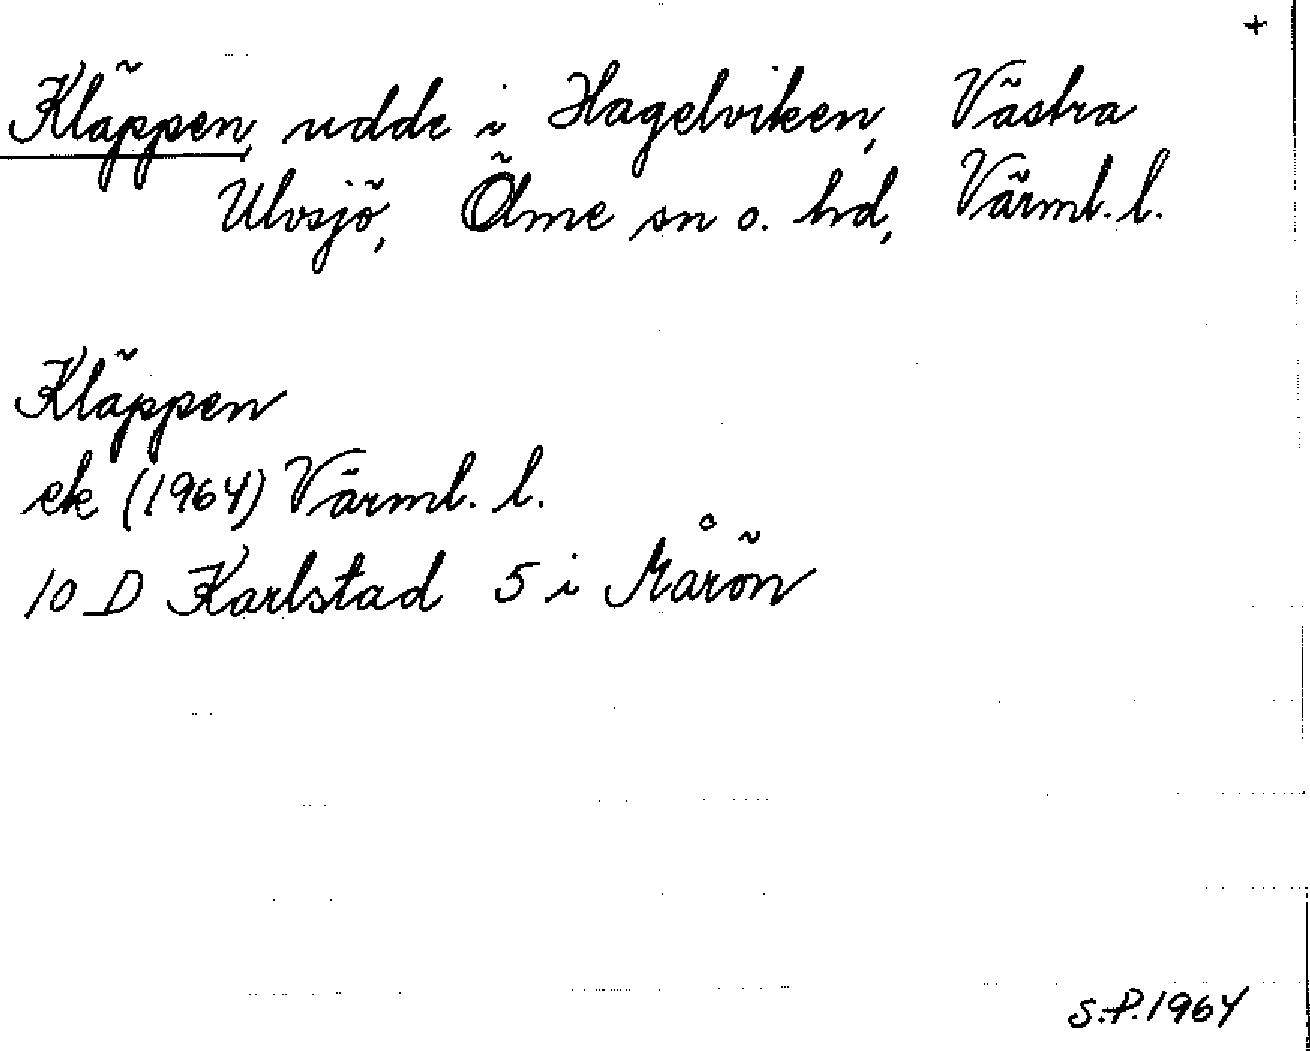 +
Kläppen, udde i Hagelviken, Västra
Ulvsjö, Ölme sn o. hd, Värml. l.
Kläppen
ek (1964) Värml. l.
10 D Karlstad 5 i Mårön
S.P. 1964